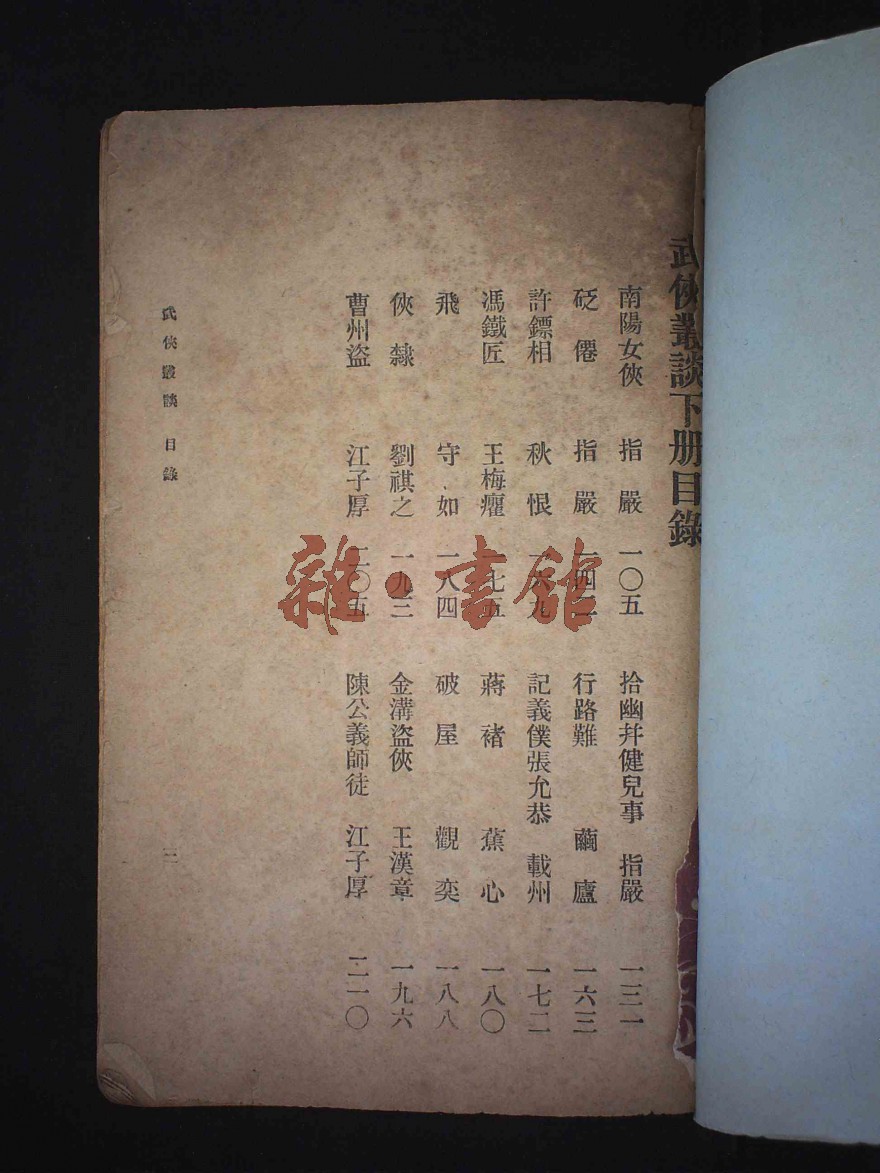 武俠叢談下册目錄
南陽女俠 指嚴 一〇五 拾幽幷健兒事 指嚴 一三一
砭僊 指嚴 一四二 行路難 繭廬 一六三
許鏢相 秋恨 一六九 記義僕張允恭 載州 一七二
馮鐵匠 王梅癯 一七五 蔣褚 蕉心 一八〇
飛 守如 一八四 破屋 觀奕 一八八
俠隸 劉祺之 一九三 金溝盜俠 王漢章 一九六
曹州盜 江子厚 二〇五 陳公義師徒 江子厚 二一〇
武俠叢談 目錄
雜·書館